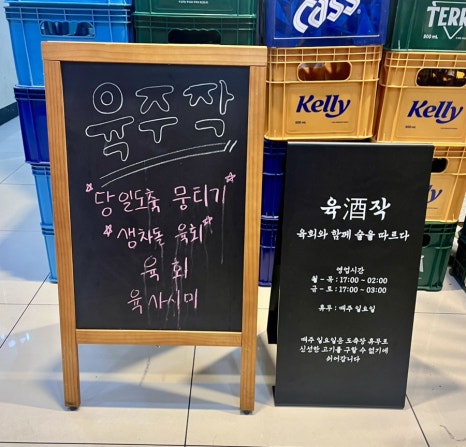 CASS
TERRA
Kelly
Kelly
육주작
당일도축 뭉티기
생차돌 육회
육회
육사시미
육酒작
육회와 함께 술을 따르다
영업시간
월 - 목 : 17:00 ~ 02:00
금 - 토 : 17:00 ~ 03:00
휴무 : 매주 일요일
매주 일요일은 도축장 휴무로
신선한 고기를 구할 수 없기에
쉬어갑니다